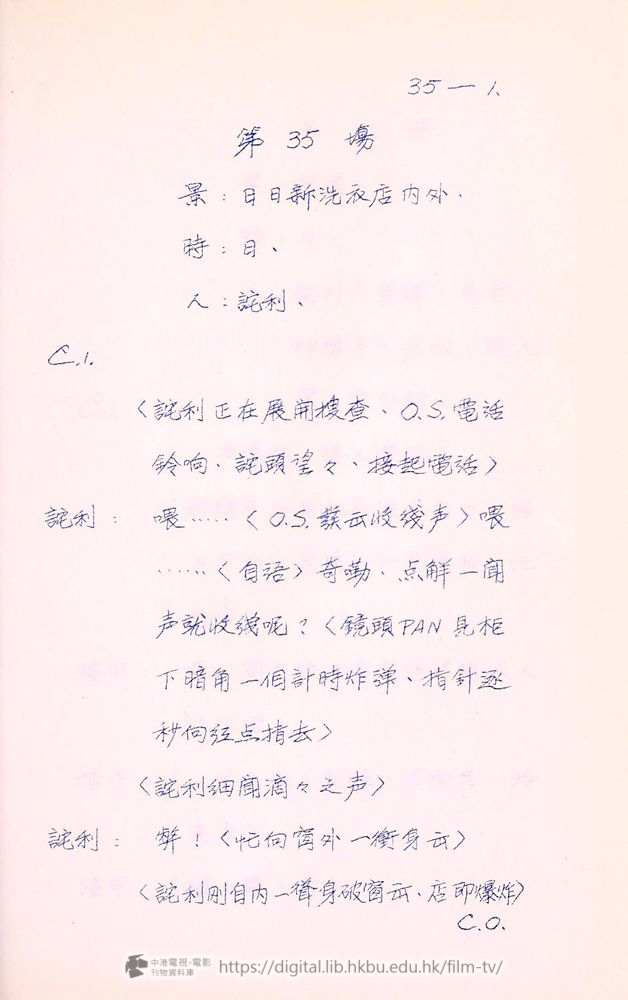 35－1.
第 35 場
景：日日新洗衣店内外、
時：日、
人：詫利、
C.1.
〈詫利正在展開搜查、O.S.電話
鈴响、詫頭望々、接起電話〉
詫利： 喂……〈O.S.蔡云收线声〉喂
……〈自语〉奇嘞、点解一聞
声就收线呢？〈鏡頭PAN 見柜
下暗角一個計時炸弹、指針逐
秒向红点指去〉
〈詫利细聞滴々之声〉
詫利： 弊！〈忙向窗外一衝身云〉
〈詫利刚自内一聳身破窗云、店即爆炸〉
C.O.
中港電視·電影
刊物資料庫
https://digital.lib.hkbu.edu.hk/film-tv/